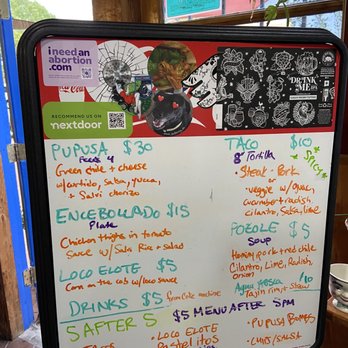 i need an
abortion
.com
RECOMMEND US ON
nextdoor
DRINK
ME
PUPUSA $30
Feeds 4
Green chile + cheese
w/curtido, salsa, yucca,
+ Salvi chorizo
ENCEBOLLADO $15
Plate
Chicken thighs in tomato
sauce w/ Salsa Rice + salad
LOCO ELOTE $5
Corn on the cob w/ loco sauce
DRINKS $5
From Coke machine
TACO $10
8" Tortilla
SPICY
• Steak • Pork
or
veggie w/ guac,
cucumber + radish
cilantro, Salsa, lime
POZOLE $5
SOUP
Hominy, pork + red chile
Cilantro, Lime, Radish,
onion
Agua fresca $10
Tajin rim + straw
5 AFTER 5
$5 MENU AFTER 5PM
• LOCO ELOTE
Pastelitos
• PUPUSA BOMBS
• CHIPS/SALSA